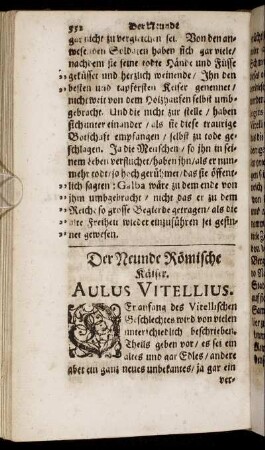 552 Der Neunde
gar nicht zu vergleichen sei. Von den an-
wesenden Soldaten haben sich gar viele/
nachdem sie seine todte Hände und Füsse
geküsset und herzlich weinende/ Ihn den
besten und tapfersten Keiser genennet/
nicht weit von dem Holzhaufen selbst umb-
gebracht. Und die nicht zur stelle/ haben
sich unter einander/ als sie diese traurige
Botschaft empfangen/ selbst zu tode ge-
schlagen. Ja die Menschen/ so ihn in sei-
nem Leben verfluchet/ haben ihn/ als er nun-
mehr todt/ so hoch gerühmet/ das sie öffent-
lich sagten: Galba wäre zu dem ende von
ihm umbgebracht/ nicht das er zu dem
Reich so grosse Begierde getragen/ als die
alte Freiheit wieder einzuführen sei gesin-
net gewesen.
Der Neunde Römische
Käiser.
AULUS VITELLIUS.
Er anfang des Vitellischen
Geschlechtes wird von vielen
unterschiedlich beschrieben.
Theils geben vor/ es sei ein
altes und gar Edles/ andere
aber ein ganz neues unbekantes/ ja gar ein
ver-